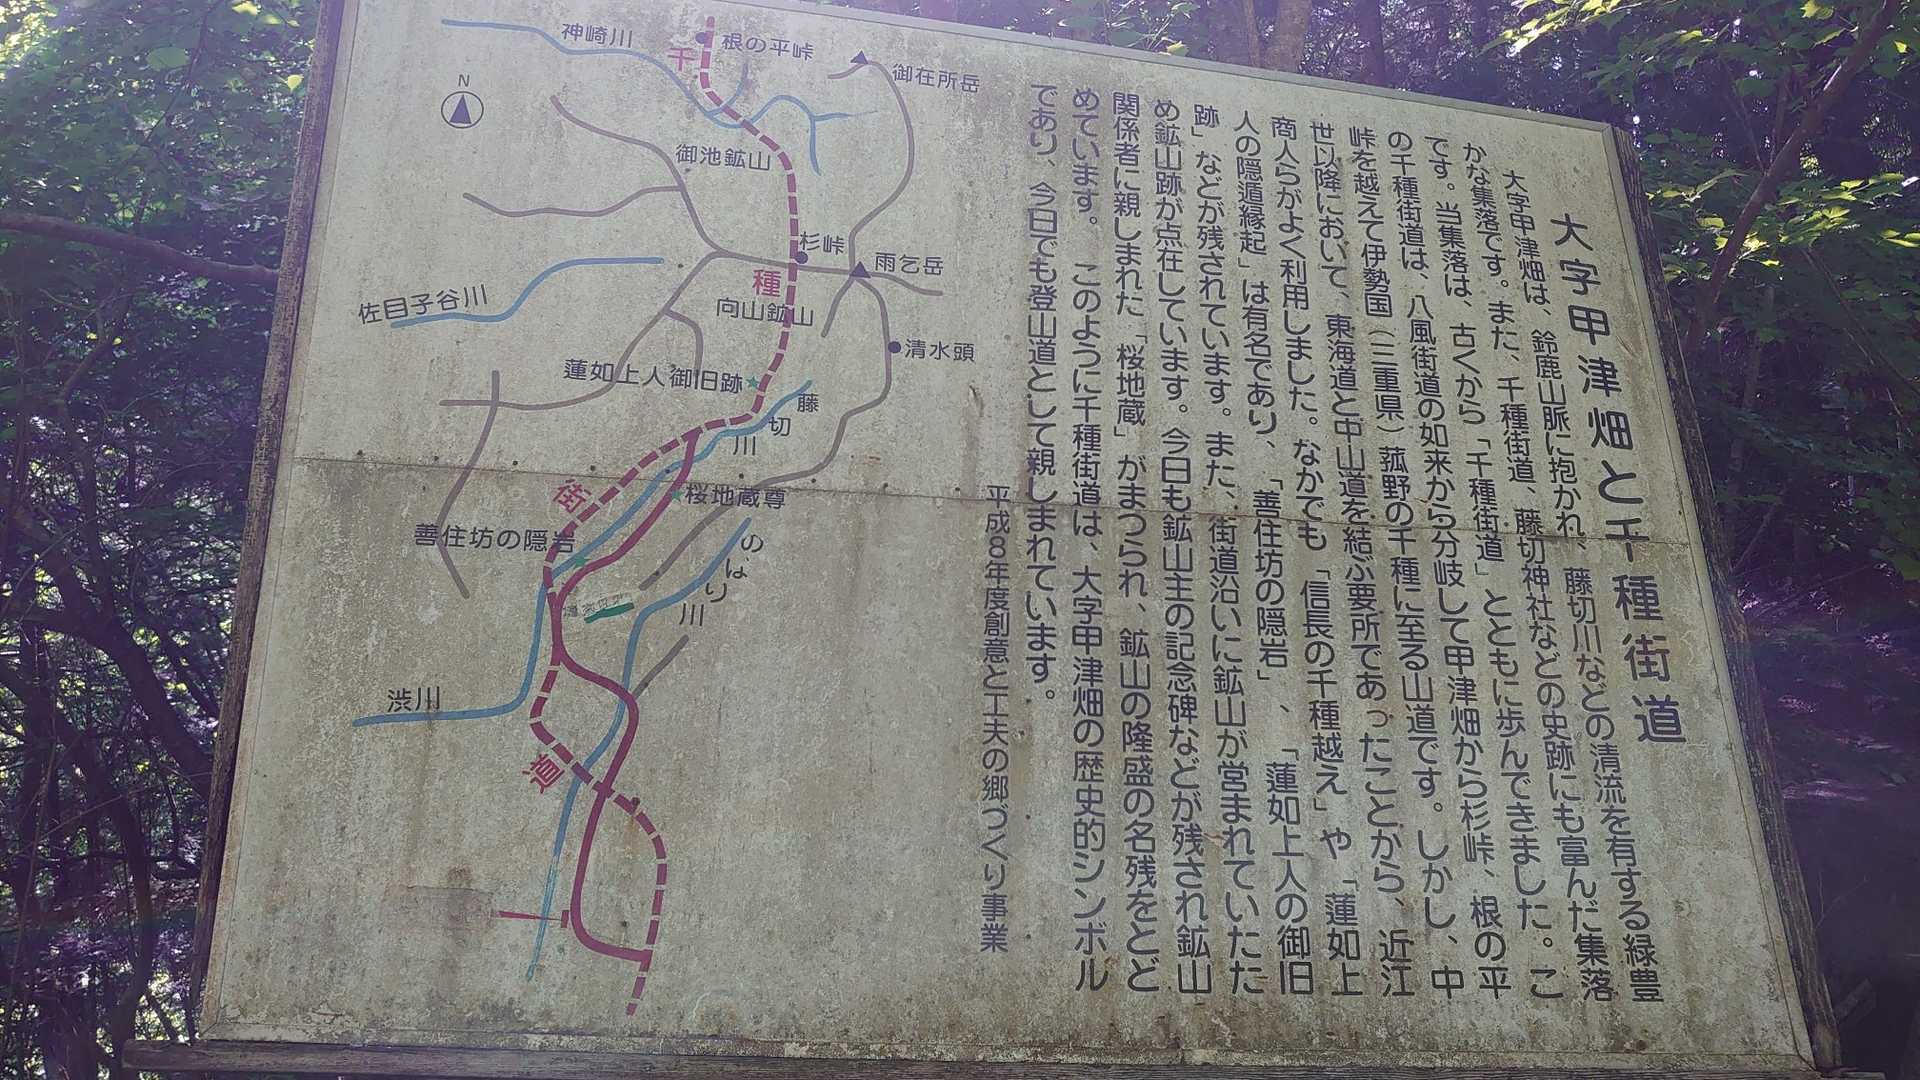 大字甲津畑と千種街道
大字甲津畑は、鈴鹿山脈に抱かれ、藤切川などの清流を有する緑豊
かな集落です。また、千種街道、藤切神社などの史跡にも富んだ集落
です。当集落は、古くから「千種街道」とともに歩んできました。こ
の千種街道は、八風街道の如来から分岐して甲津畑から杉峠、根の平
峠を越えて伊勢国（三重県）菰野の千種に至る山道です。しかし、中
世以降において、東海道と中山道を結ぶ要所であったことから、近江
商人らがよく利用しました。なかでも「信長の千種越え」や「蓮如上
人の隠遁縁起」は有名であり、「善住坊の隠岩」、「蓮如上人の御旧
跡」などが残されています。また、街道沿いに鉱山が営まれていたた
め鉱山跡が点在しています。今日も鉱山主の記念碑などが残され鉱山
関係者に親しまれた「桜地蔵」がまつられ、鉱山の隆盛の名残をとど
めています。このように千種街道は、大字甲津畑の歴史的シンボル
であり、今日でも登山道として親しまれています。
平成８年度創意と工夫の郷づくり事業
N
神崎川
根の平峠
御在所岳
千
御池鉱山
杉峠
雨乞岳
種
佐目子谷川
向山鉱山
清水頭
蓮如上人御旧跡
藤切川
街
桜地蔵尊
善住坊の隠岩
のばり川
渋川
道